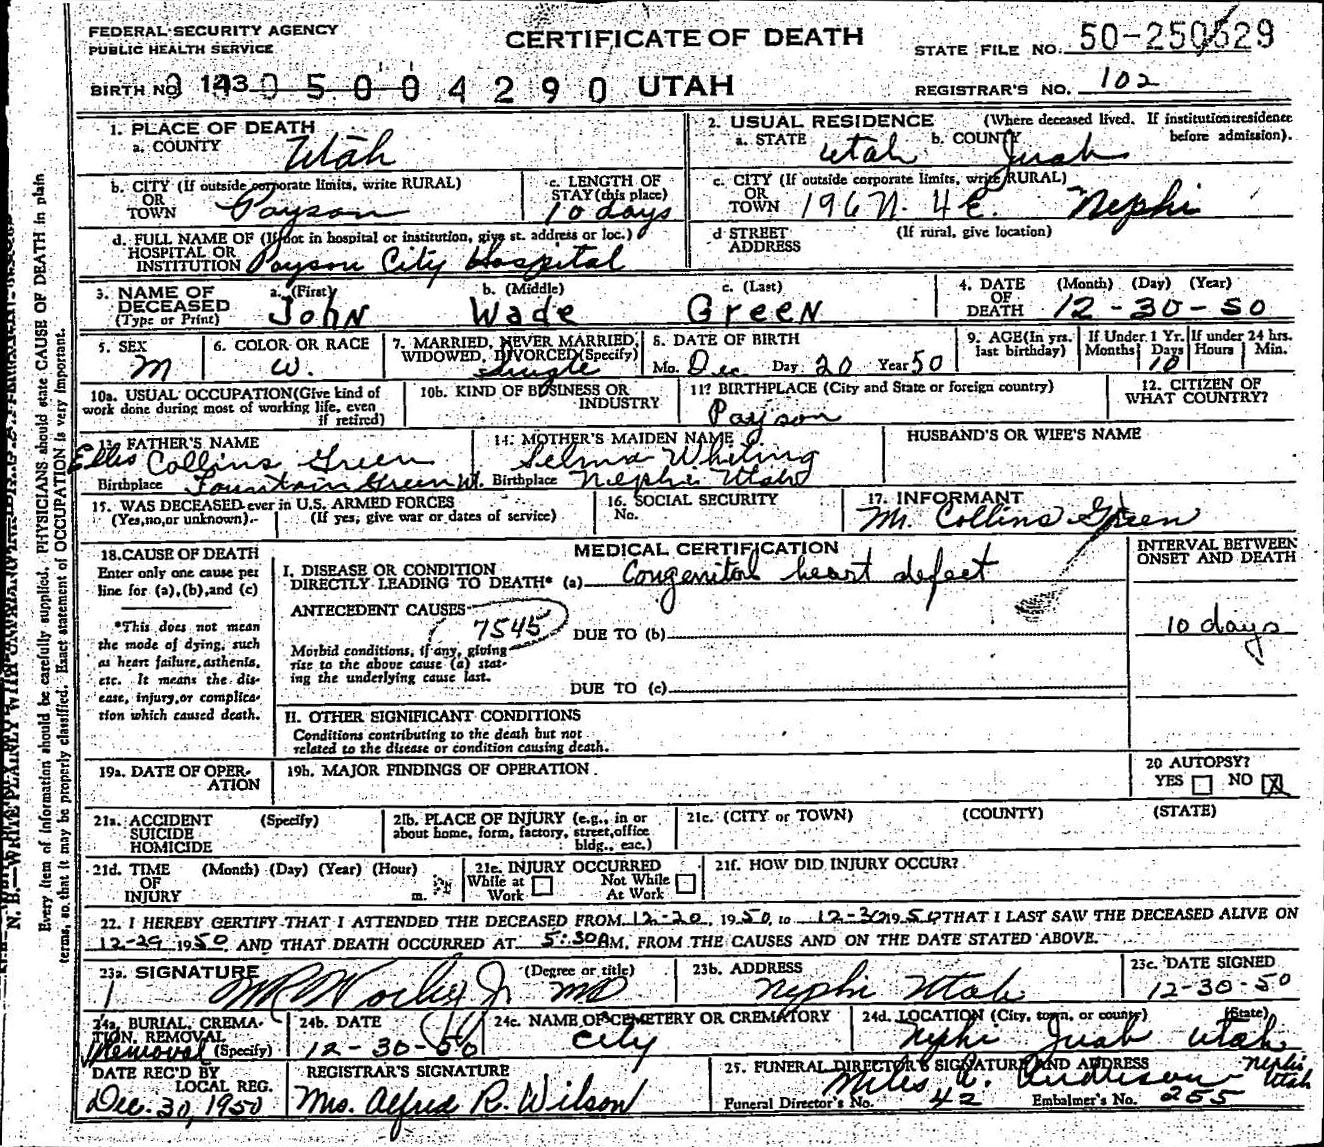 FEDERAL SECURITY AGENCY
PUBLIC HEALTH SERVICE
CERTIFICATE OF DEATH
STATE FILE NO. 50-250529
BIRTH NO. 143 0 5 0 0 4 2 9 0 UTAH
REGISTRAR'S NO. 102
1. PLACE OF DEATH
a. COUNTY Utah
2. USUAL RESIDENCE (Where deceased lived. If institution: residence before admission).
a. STATE Utah b. COUNTY Juab
b. CITY (If outside corporate limits, write RURAL)
OR
TOWN Payson
c. LENGTH OF
STAY (this place)
10 days
c. CITY (If outside corporate limits, write RURAL)
OR
TOWN 196 N. 4 E. Nephi
d. FULL NAME OF (If not in hospital or institution, give st. address or loc.)
HOSPITAL OR
INSTITUTION Payson City Hospital
d STREET (If rural, give location)
ADDRESS
3. NAME OF
DECEASED
(Type or Print)
a. (First) b. (Middle) c. (Last)
John Wade Green
4. DATE (Month) (Day) (Year)
OF
DEATH 12-30-50
5. SEX
M
6. COLOR OR RACE
W.
7. MARRIED, NEVER MARRIED,
WIDOWED, DIVORCED (Specify)
Single
8. DATE OF BIRTH
Mo. Dec. Day 20 Year 50
9. AGE (In yrs.
last birthday)
If Under 1 Yr.
Months Days
10
If under 24 hrs.
Hours Min.
10a. USUAL OCCUPATION (Give kind of
work done during most of working life, even
if retired)
10b. KIND OF BUSINESS OR
INDUSTRY
11? BIRTHPLACE (City and State or foreign country)
Payson
12. CITIZEN OF
WHAT COUNTRY?
13. FATHER'S NAME
Ellis Collins Green
Birthplace Fountain Green Ut.
14. MOTHER'S MAIDEN NAME
Selma Whiting
Birthplace Nephi Utah
HUSBAND'S OR WIFE'S NAME
15. WAS DECEASED ever in U.S. ARMED FORCES
(Yes, no, or unknown). (If yes, give war or dates of service)
16. SOCIAL SECURITY
No.
17. INFORMANT
Mr. Collins Green
18. CAUSE OF DEATH
Enter only one cause per
line for (a), (b), and (c)
*This does not mean
the mode of dying, such
as heart failure, asthenia,
etc. It means the dis-
ease, injury, or complica-
tion which caused death.
MEDICAL CERTIFICATION
I. DISEASE OR CONDITION
DIRECTLY LEADING TO DEATH* (a) Congenital heart defect
ANTECEDENT CAUSES
7545
DUE TO (b)
Morbid conditions, if any, giving
rise to the above cause (a) stat-
ing the underlying cause last.
DUE TO (c)
INTERVAL BETWEEN
ONSET AND DEATH
10 days
II. OTHER SIGNIFICANT CONDITIONS
Conditions contributing to the death but not
related to the disease or condition causing death.
19a. DATE OF OPER-
ATION
19b. MAJOR FINDINGS OF OPERATION
20 AUTOPSY?
YES NO X
21a. ACCIDENT (Specify)
SUICIDE
HOMICIDE
21b. PLACE OF INJURY (e.g., in or
about home, form, factory, street, office
bldg., esc.)
21c. (CITY or TOWN) (COUNTY) (STATE)
21d. TIME (Month) (Day) (Year) (Hour)
OF
INJURY m.
21e. INJURY OCCURRED
While at Work Not While At Work
21f. HOW DID INJURY OCCUR?
22. I HEREBY CERTIFY THAT I ATTENDED THE DECEASED FROM 12-20, 1950, to 12-30 1950 THAT I LAST SAW THE DECEASED ALIVE ON
12-29 1950 AND THAT DEATH OCCURRED AT 5:30 AM, FROM THE CAUSES AND ON THE DATE STATED ABOVE.
23a. SIGNATURE (Degree or title)
MD
23b. ADDRESS
Nephi Utah
23c. DATE SIGNED
12-30-50
24a. BURIAL, CREMA-
TION, REMOVAL
Removal (Specify)
24b. DATE
12-30-50
24c. NAME OF CEMETERY OR CREMATORY
City
24d. LOCATION (City, town, or county) (State)
Nephi Juab Utah
DATE REC'D BY
LOCAL REG.
Dec. 30, 1950
REGISTRAR'S SIGNATURE
Mrs. Alfred R. Wilson
25. FUNERAL DIRECTOR'S SIGNATURE AND ADDRESS
Miles A. Nephi Utah
Funeral Director's No. 42 Embalmer's No. 255
Every item of information should be carefully supplied. PHYSICIANS should state CAUSE OF DEATH in plain
terms, so that it may be properly classified. Exact statement of OCCUPATION is very important.